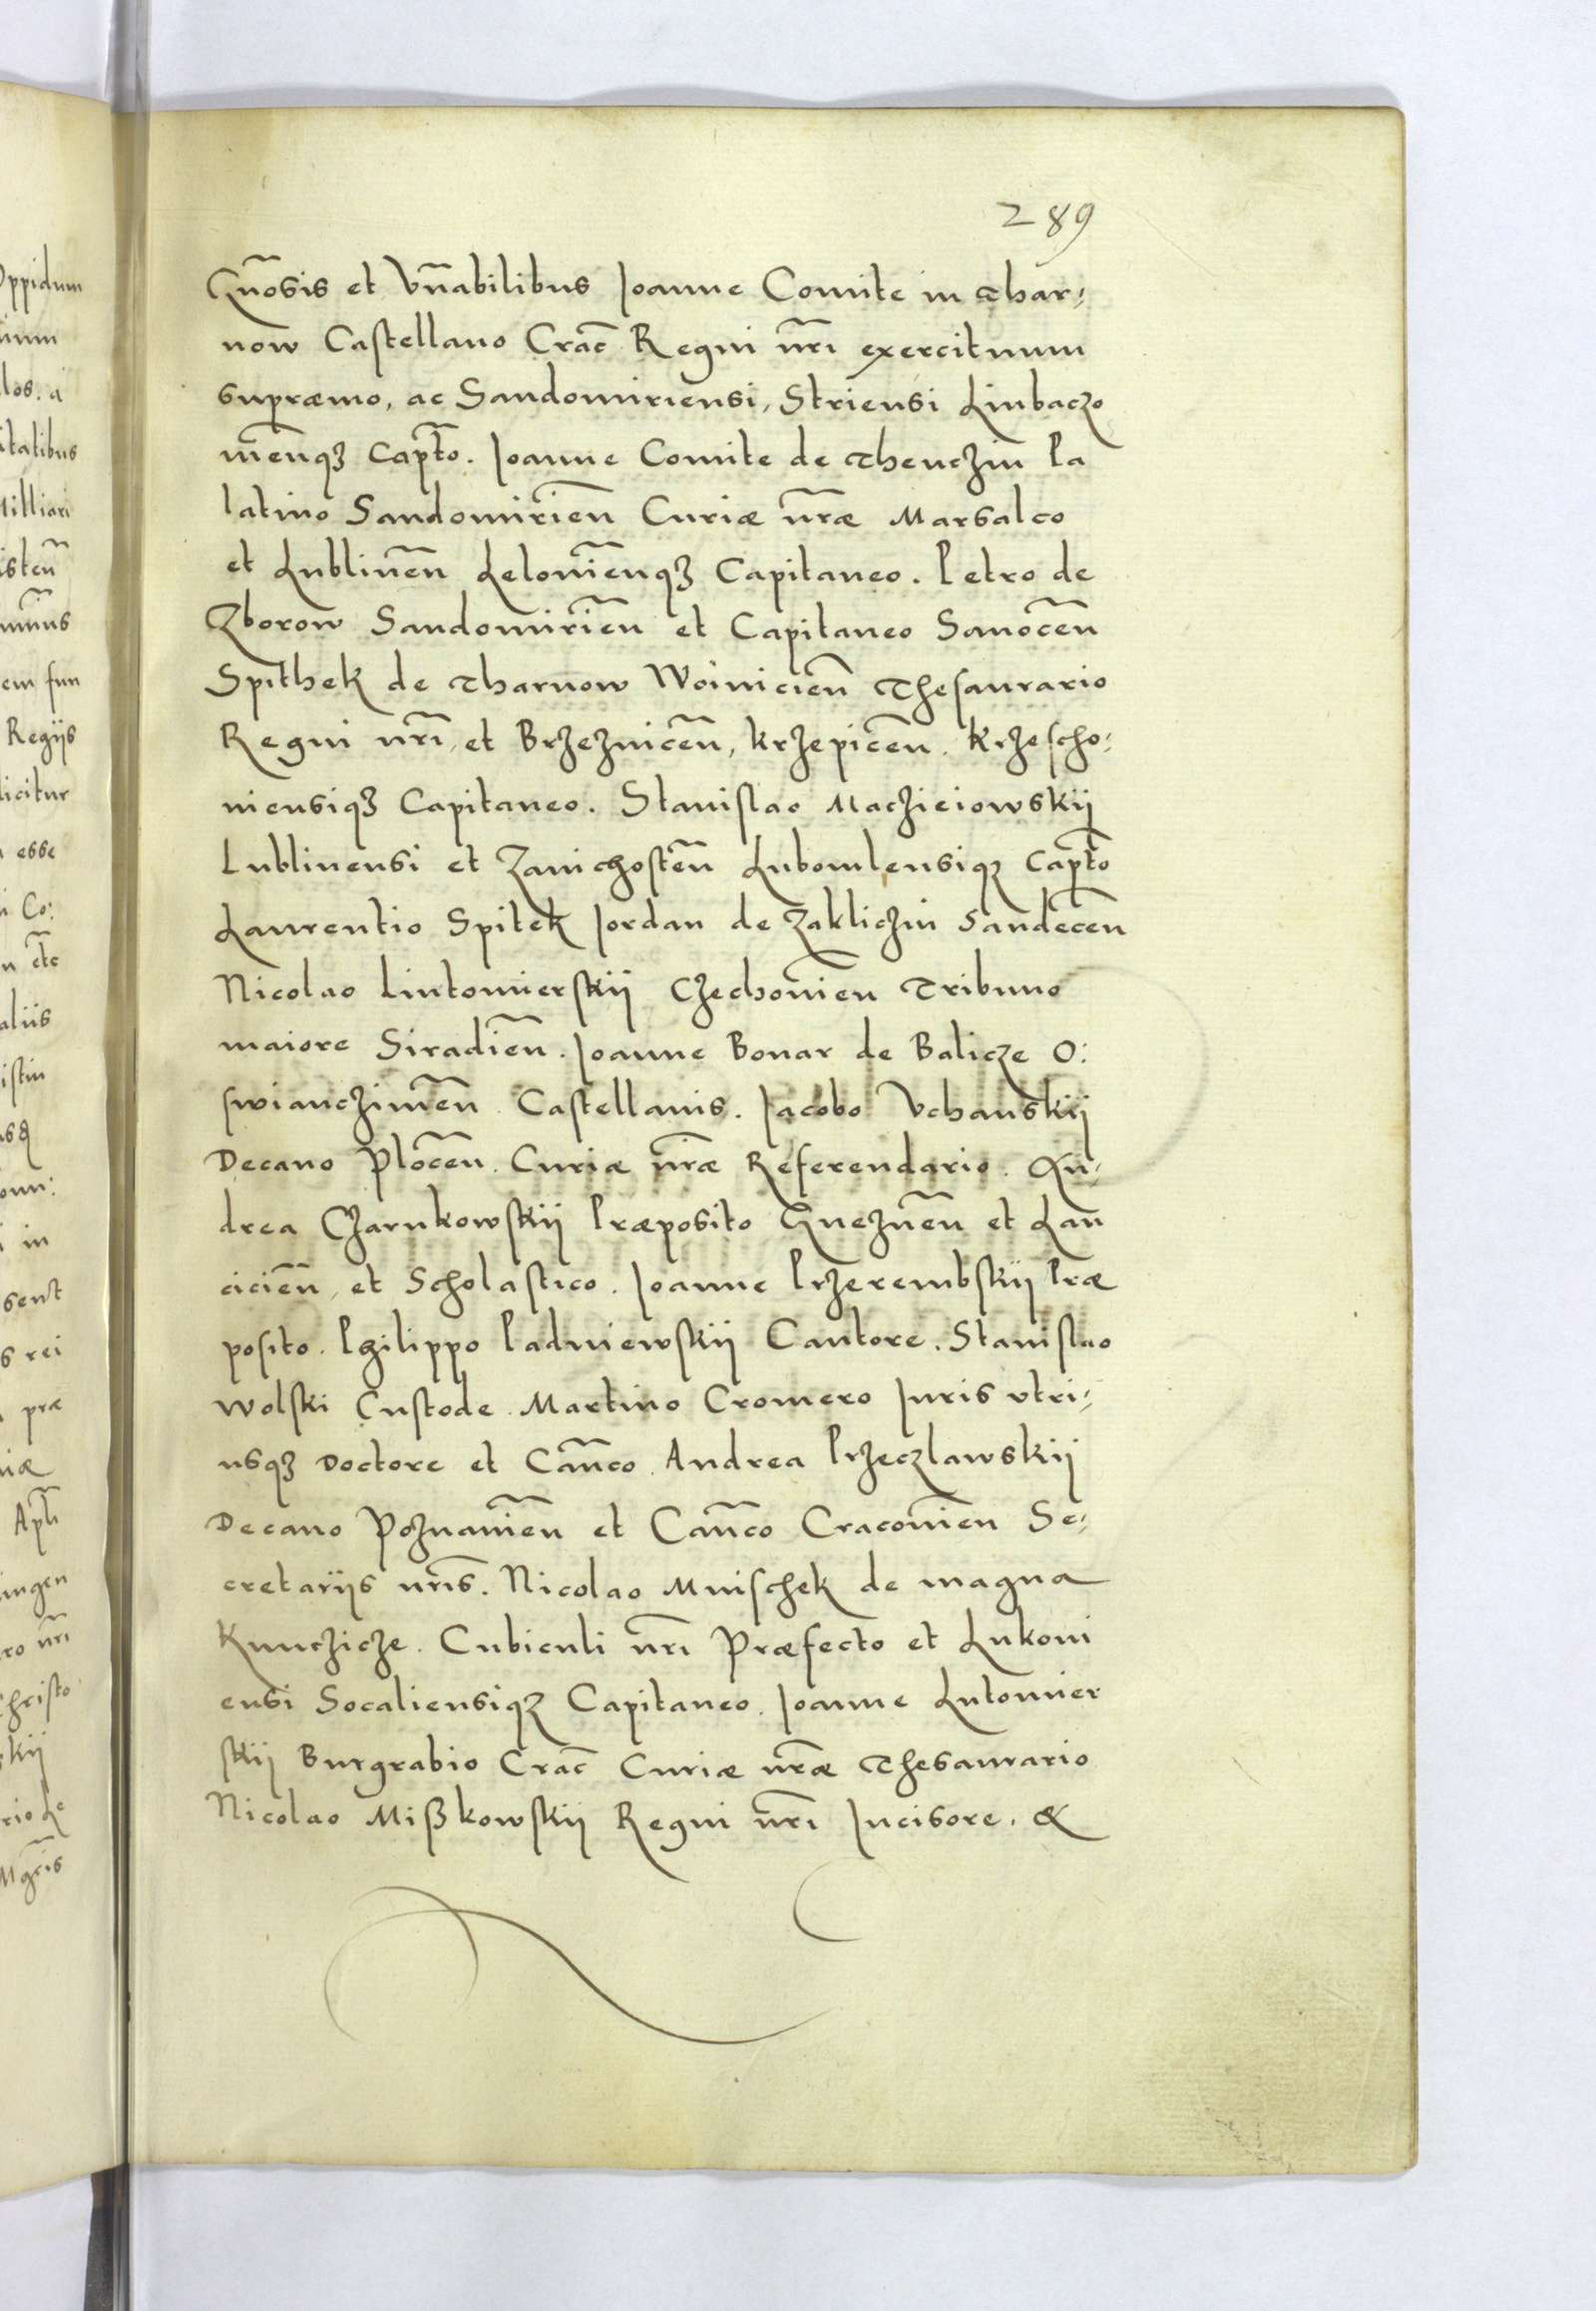 289
Gnōsis et Vnābilibus Joanne Comite in Thar⸗
now Castellano Crac̄ Regni nr̄i exercituum
supræmo, ac Sandomiriensi, Striensi Liubaczo
vien̄qꝫ Capt̄o. Joanne Comite de Thenczin Pa
latino Sandomirien̄ Curiæ nr̄æ Marsalco
et Lublinen̄ Lelovien̄qꝫ Capitaneo. Petro de
Zborow Sandomirien̄ et Capitaneo Sanocen̄
Spithek de Tharnow Woinicien̄ Thesaurario
Regni nr̄i, et Brzeznicen̄, krzepicen̄. Krzescho⸗
niensiqꝫ Capitaneo. Stanislao Macziejowskij
Lublinensi et Zanichosten̄ Lubomlensiqꝫ Capt̄o
Laurentio Spitek Jordan de Zakliczin Sandecen̄
Nicolao Lintomierskij Czechovien̄ Tribuno
maiore Siradien̄. Joanne Bonar de Balicze O:
swianczimen̄ Castellanis. Jacobo Vchanskij
Decano Plocen̄. Curiæ nr̄æ Referendario. An⸗
drea Czarnkowskij Præposito Gneznen̄ et Lan
cicien̄, et Scholastico. Joanne Przerembskij Præ
posito. Philippo Padniewskij Cantore. Stanislao
Wolski Custode. Martino Cromero Juris vtri⸗
usqꝫ Doctore et Can̄co. Andrea Przeczlawskij
Decano Poznanien̄ et Can̄co Cracovien̄ Se⸗
cretarijs nr̄is. Nicolao Mnischek de magna
Kunczicze. Cubiculi nr̄i Præfecto et Lukovi
ensi Socaliensiqꝫ Capitaneo. Joanne Lutomier
skij Burgrabio Crac̄ Curiæ nr̄æ Thesaurario
Nicolao Mißkowskij Regni nr̄i Incisore. &
Oppidum
los. a
italibus
Milliari
isten̄
em fun
Regijs
licitur
esse
Co:
etc̄
aliis
istin
in
sent
s rei
præ
Apl̄i
ingen
ro nr̄i
Christo
skij
rio Le